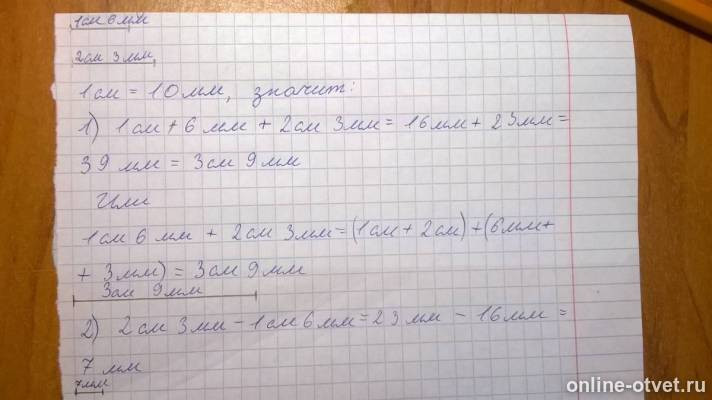 1см 6мм
2см 3мм
1см = 10мм, значит:
1) 1см+6мм + 2см 3мм = 16мм + 23мм =
39 мм = 3см 9мм
Или
1см 6мм + 2см 3мм = (1см + 2см) + (6мм+
+ 3мм) = 3см 9мм
3см 9мм
2) 2см 3мм - 1см 6мм = 23мм - 16мм =
7 мм
7мм
online-otvet.ru